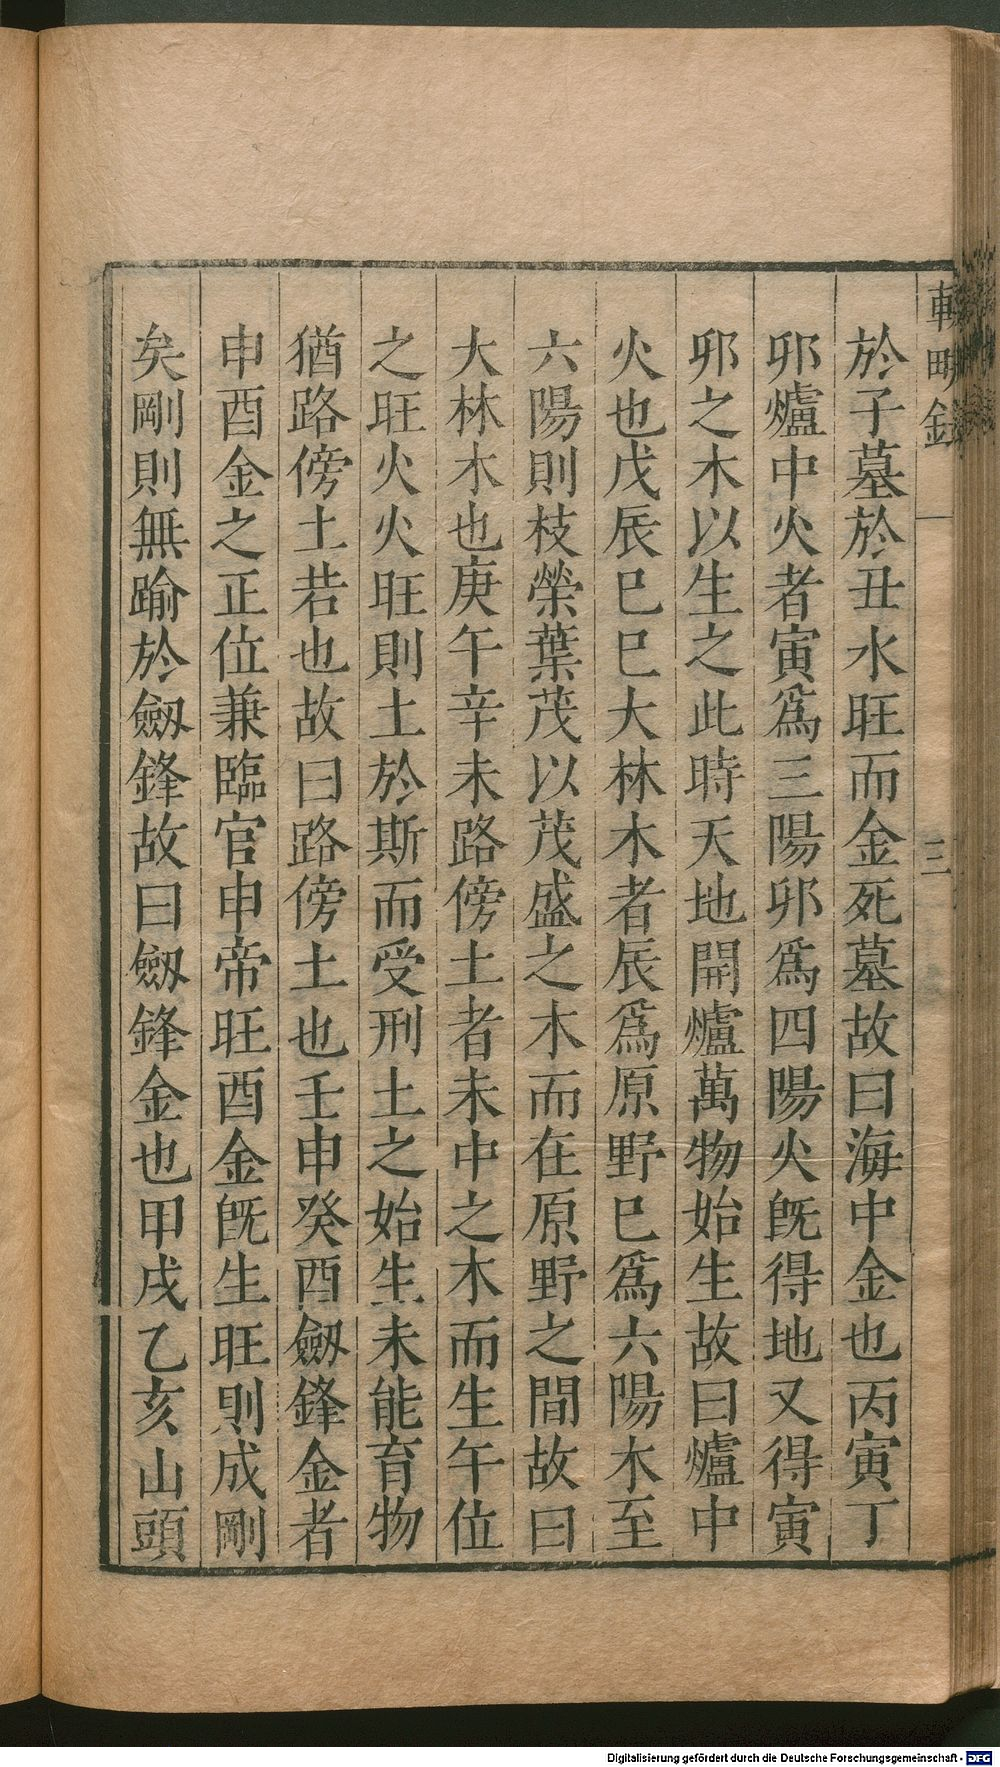 於子墓於丑水旺而金死墓故曰海中金也丙寅丁
卯爐中火者寅爲三陽卯爲四陽火旣得地又得寅
卯之木以生之此時天地開爐萬物始生故曰爐中
火也戊辰巳巳大林木者辰爲原野巳爲六陽木至
六陽則枝榮葉茂以茂盛之木而在原野之間故曰
大林木也庚午辛未路傍土者未中之木而生午位
之旺火火旺則土於斯而受刑土之始生未能育物
猶路傍土若也故曰路傍土也壬申癸酉劔鋒金者
申酉金之正位兼臨官申帝旺酉金旣生旺則成剛
矣剛則無踰於劔鋒故曰劔鋒金也甲戌乙亥山頭
三
Digitalisierung gefördert durch die Deutsche Forschungsgemeinschaft - DFG